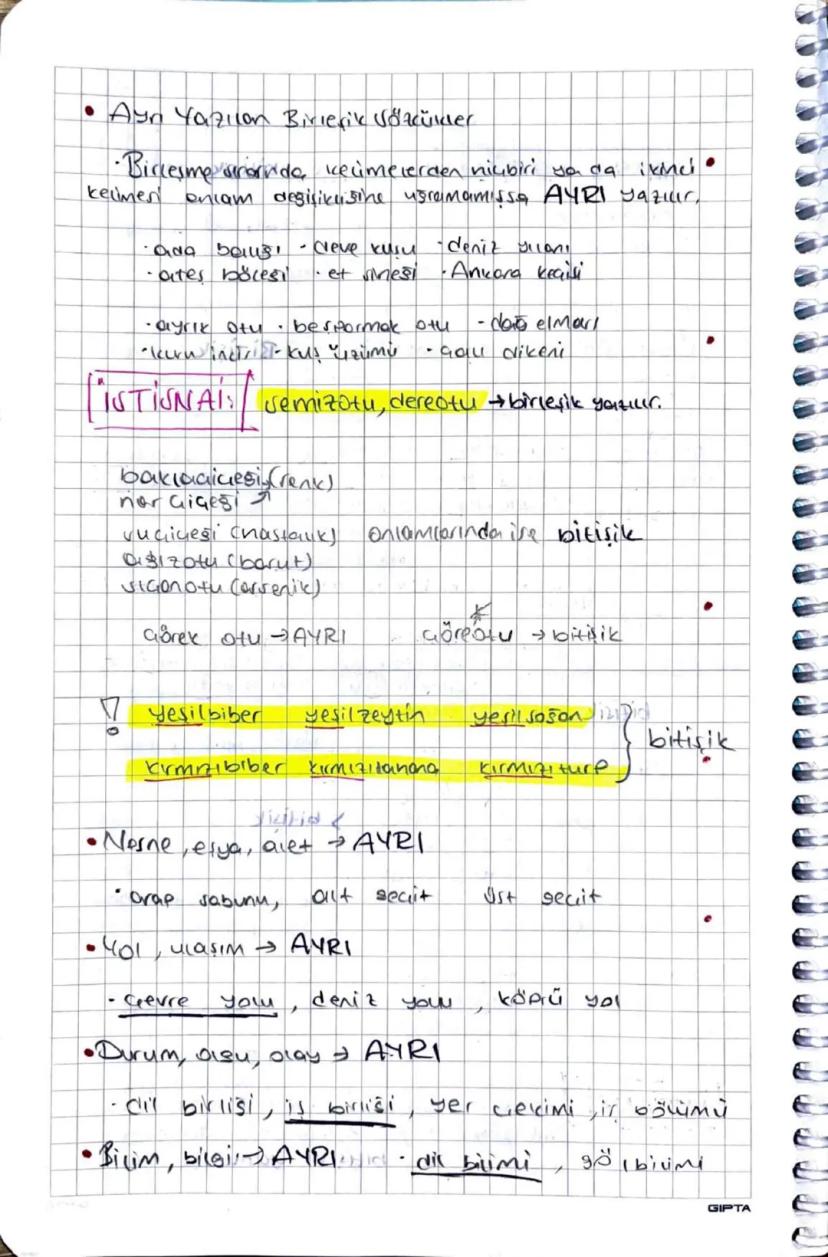 • Ayrı Yazılan Birleşik Sözcükler
· Birleşme sırasında kelimelerden hiçbiri ya da ikinci
kelimesi anlam değişikliğine uğramamışsa AYRI yazılır.
· ada balığı · deve kuşu · deniz yılanı
· ateş böceği · et sineği · Ankara keçisi
· ayrık otu · beşparmak otu - dağ elması
· kuru incir - kuş üzümü · çalı dikeni
İSTİSNAİ: semizotu, dereotu → birleşik yazılır.
baklaçiçeği (renk)
narçiçeği ↗
suçiçeği (hastalık) anlamlarında ise bitişik
ağızotu (barut)
sıçanotu (arsenik)
çörek otu → AYRI çöreotu → bitişik
! yeşilbiber yeşilzeytin yeşilsoğan
kırmızıbiber kırmızılahana kırmızıturp } bitişik
• Nesne, eşya, alet → AYRI
· arap sabunu, alt geçit üst geçit
• Yol, ulaşım → AYRI
· çevre yolu, deniz yolu, köprü yol
• Durum, olgu, olay → AYRI
· dil birliği, iş birliği, yer çekimi, iş bölümü
• Bilim, bilgi → AYRI · dil bilimi, gök bilimi
GIPTA